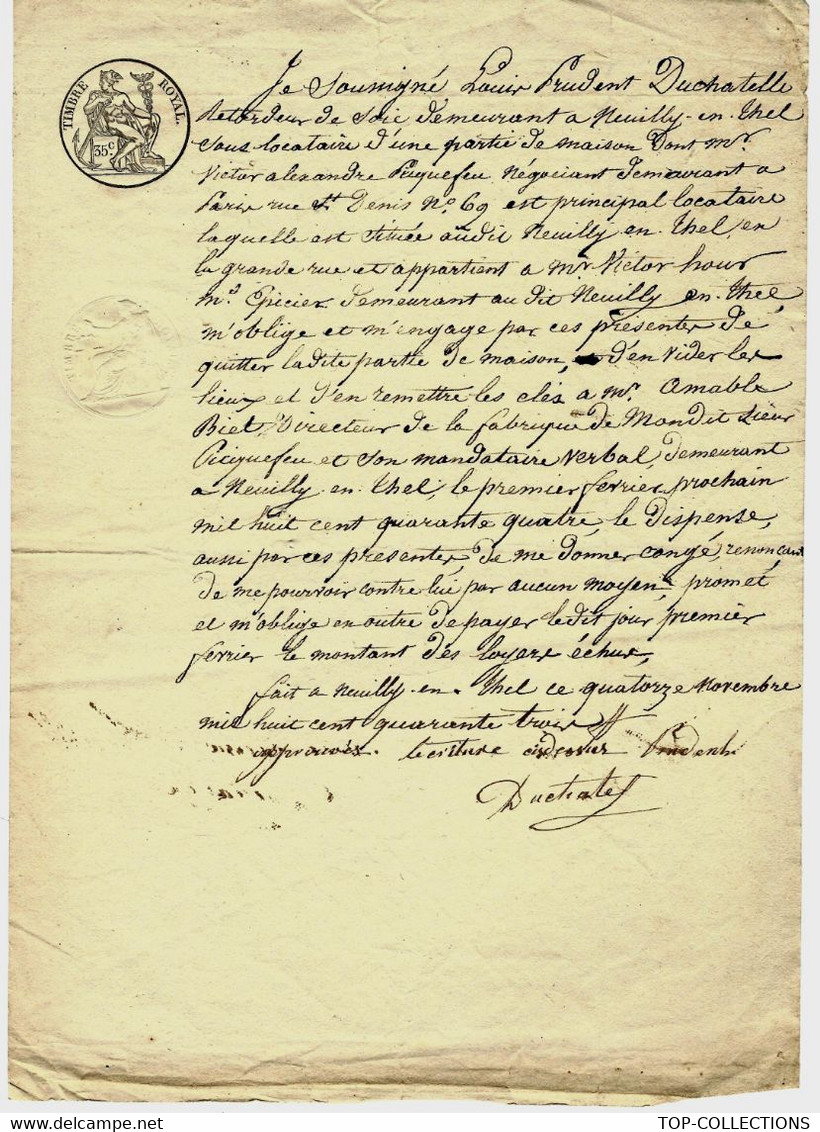 TIMBRE ROYAL.
35 c.
Je soussigné Louis Prudent Duchatelle
Retordeur de Soie demeurant a Neuilly-en-thel
sous locataire d'une partie de maison dont mr.
Victor alexandre Picquefeu Négociant demeurant a
Paris rue St. Denis No. 69 est principal locataire
laquelle est située audit Neuilly en thel, en
la grande rue et appartient a mr. Victor hour
md. Epicier demeurant au dit Neuilly en thel
m'oblige et m'engage par ces presentes de
quitter ladite partie de maison, d'en vider les
lieux et d'en remettre les clés a mr. Amable
Biet Directeur de la fabrique de Mondit Sieur
Picquefeu et son mandataire verbal, demeurant
a Neuilly en thel, le premier fevrier prochain
mil huit cent quarante quatre, le dispense,
aussi par ces presentes, de me donner congé, renonçant
de me pourvoir contre lui par aucun moyen, promet
et m'oblige en outre de payer ledit jour premier
fevrier le montant dés loyers échus,
fait a neuilly-en-thel ce quatorze Novembre
mil huit cent quarante trois
approuvés lecriture cidesus Prudent
Duchatel
TOP-COLLECTIONS